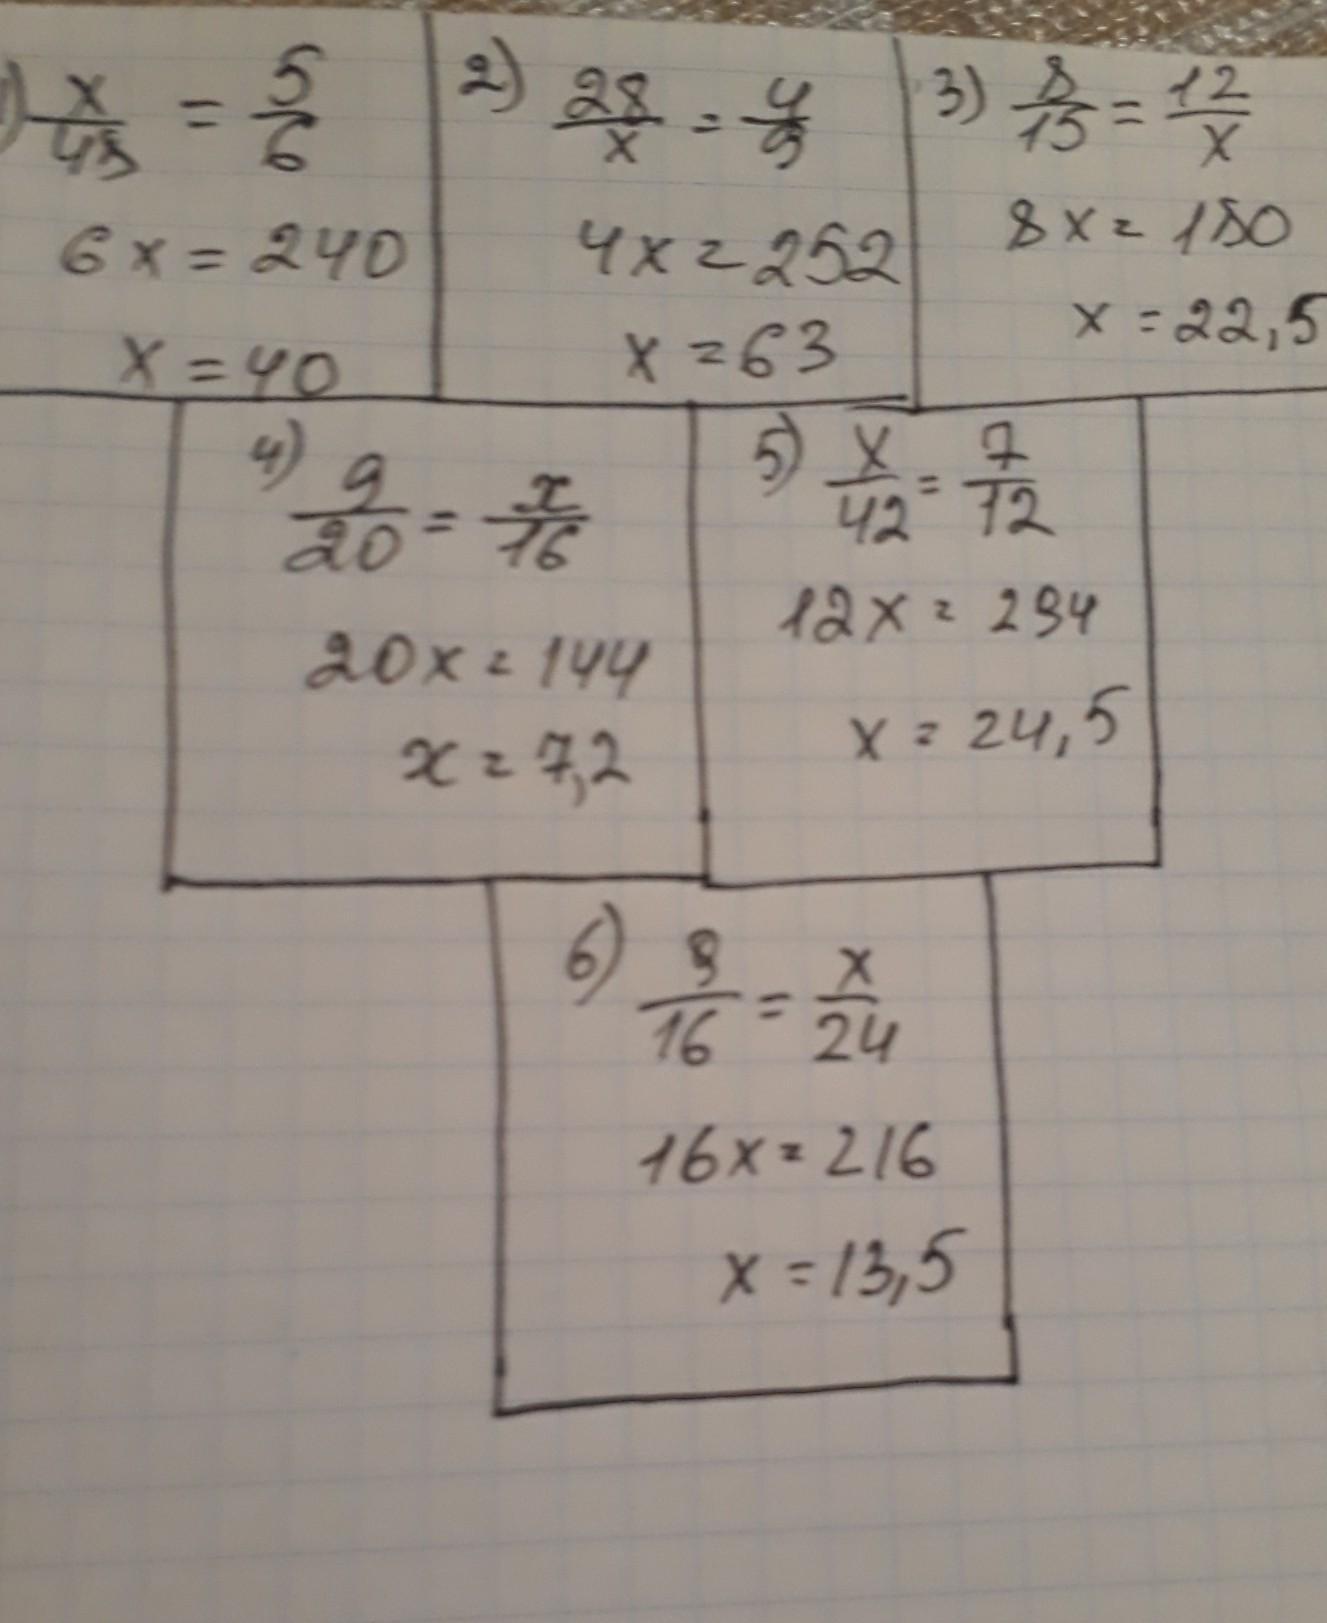 1) x/48 = 5/6
6x = 240
x = 40
2) 28/x = 4/9
4x = 252
x = 63
3) 8/15 = 12/x
8x = 180
x = 22,5
4) 9/20 = x/16
20x = 144
x = 7,2
5) x/42 = 7/12
12x = 294
x = 24,5
6) 9/16 = x/24
16x = 216
x = 13,5